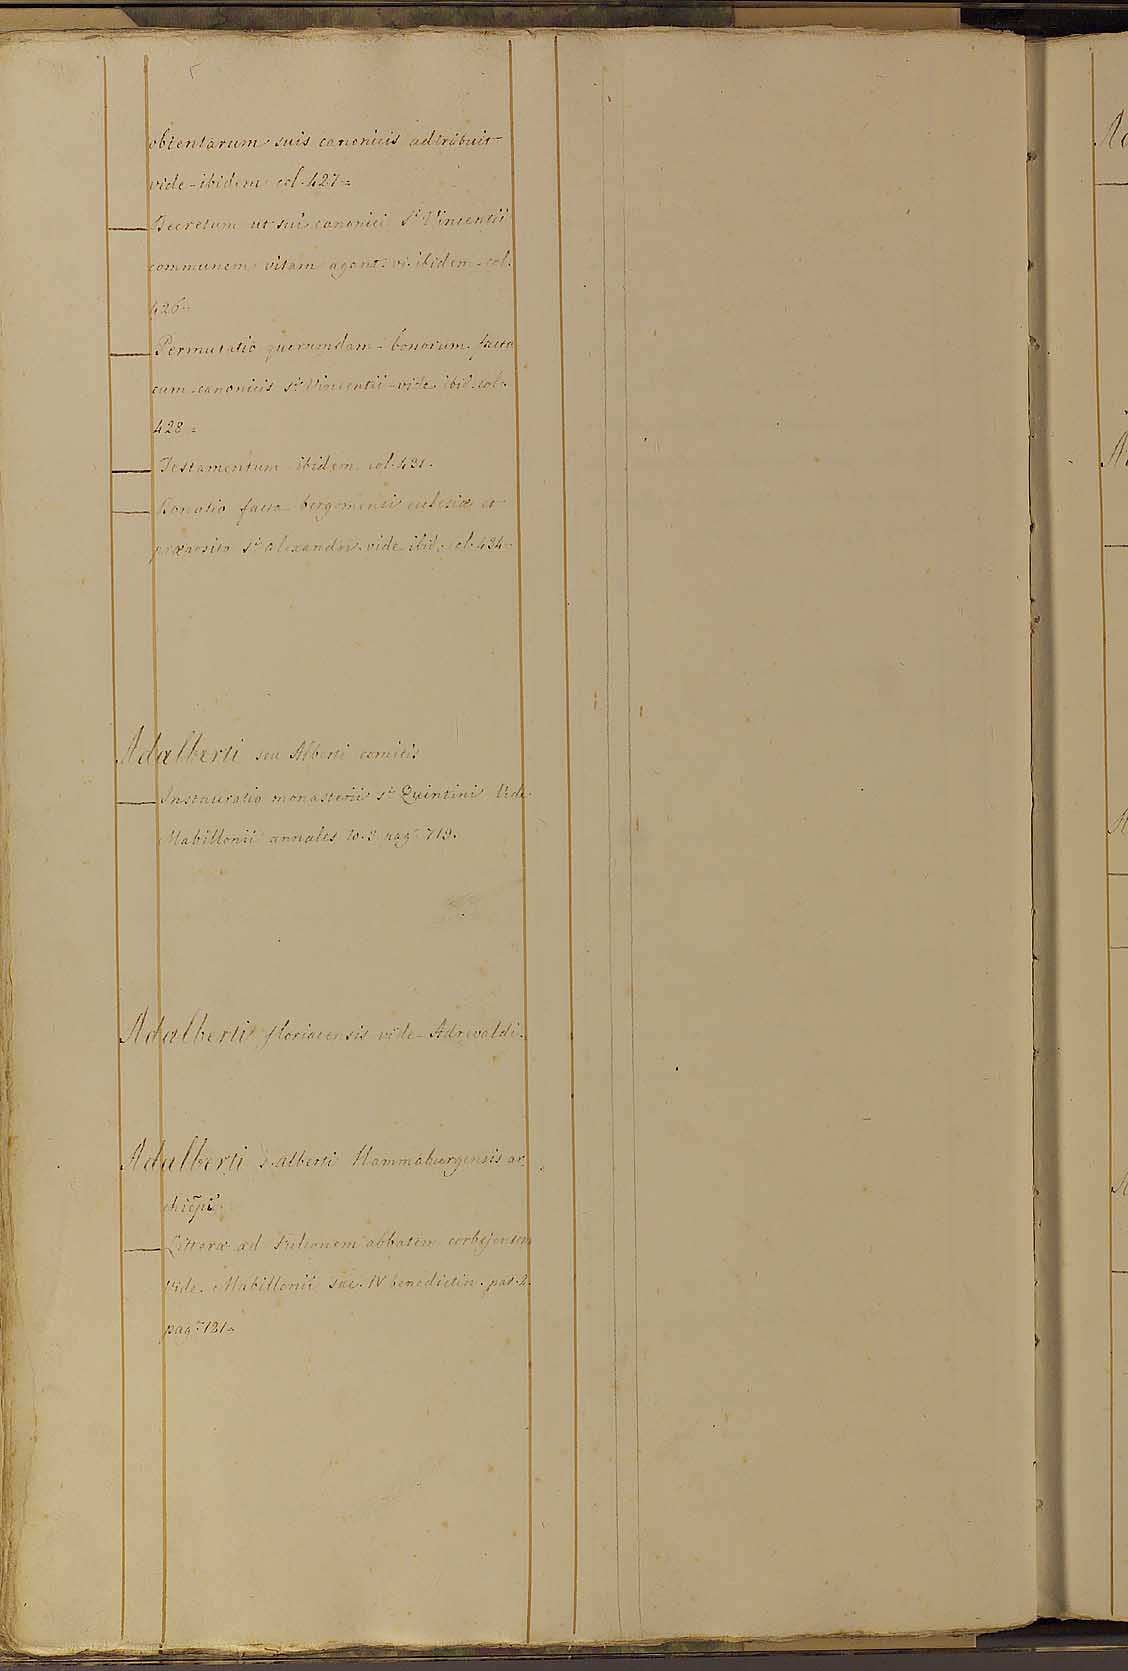 obtentarum suis canonicis adtribuit
vide - ibidem col. 427 =
Decretum ut sui canonici sti Vincentii
communem vitam agant. vi. ibidem - col.
426 =
Permutatio quorumdam - bonorum. facta
cum canonicis sti Vincentii - vide ibid. col.
428 =
Testamentum ibidem col. 431.
Donatio facta bergomensi eclesiæ et
præposito sti alexandri. vide ibid. col. 434 =
Adalberti seu Alberti comitis
Instauratio monasterii sti Quintini Vide
Mabillonii annales to. 3 pag. 719.
Adalberti floriacensis vide - Adrevaldi.
Adalberti s. alberti Hammaburgensis ar_
chiēpi
Litteræ ad Fulconem abbatem corbejensem
Vide. Mabillonii sæc. IV benedictin. par. 2.
pag. 181 =